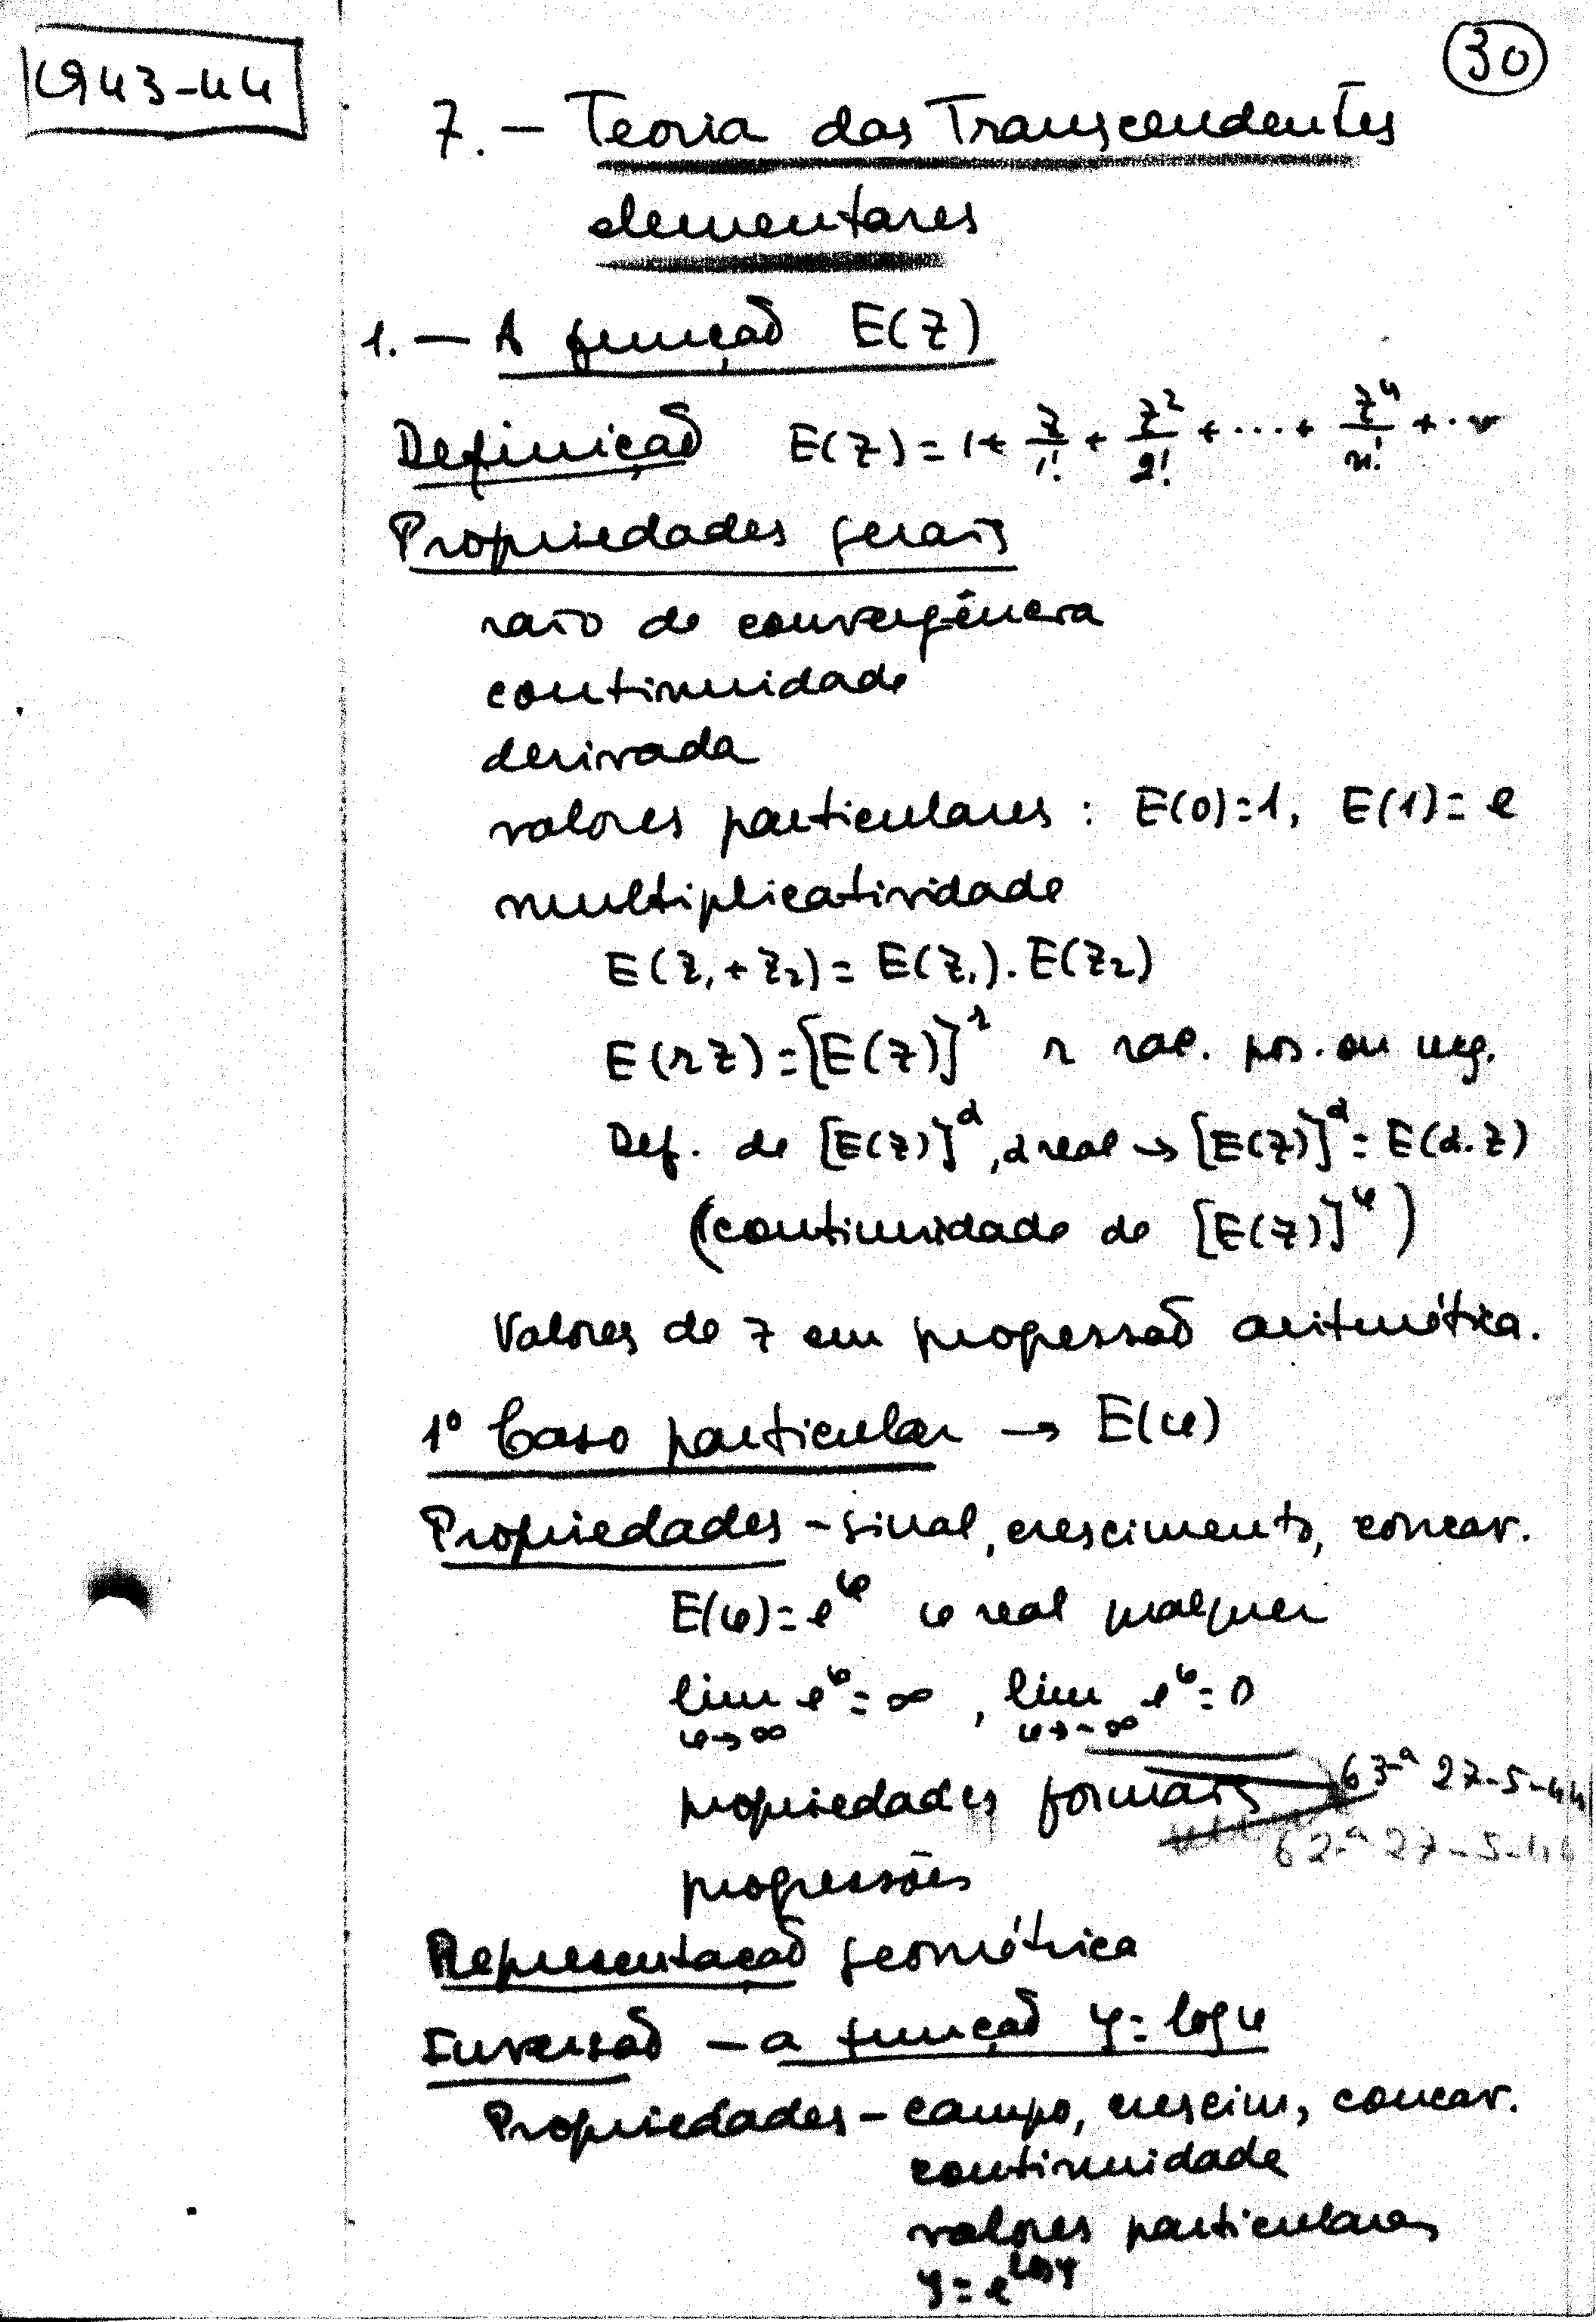 1943-44
30
7. — Teoria das Transcendentes
elementares
1. — A função E(z)
Definição E(z) = 1 + z/1! + z²/2! + ... + zⁿ/n! + ...
Propriedades gerais
raio de convergência
continuidade
derivada
valores particulares : E(0)=1, E(1)= e
multiplicatividade
E(z₁+z₂) = E(z₁).E(z₂)
E(rz) = [E(z)]^r r rac. pos. ou neg.
Def. de [E(z)]^α, α real → [E(z)]^α = E(α.z)
(continuidade de [E(z)]^φ)
Valores de z em progressão aritmética.
1º Caso particular → E(φ)
Propriedades - sinal, crescimento, concav.
E(φ) = e^φ φ real qualquer
lim e^φ = ∞ , lim e^φ = 0
φ→∞ φ→-∞
propriedades formais 63-ª 27-5-44
62-ª 27-5-44
progressões
Representação geométrica
Inversão — a função y = log φ
Propriedades - campo, crescim, concav.
continuidade
valores particulares
y = e^log y